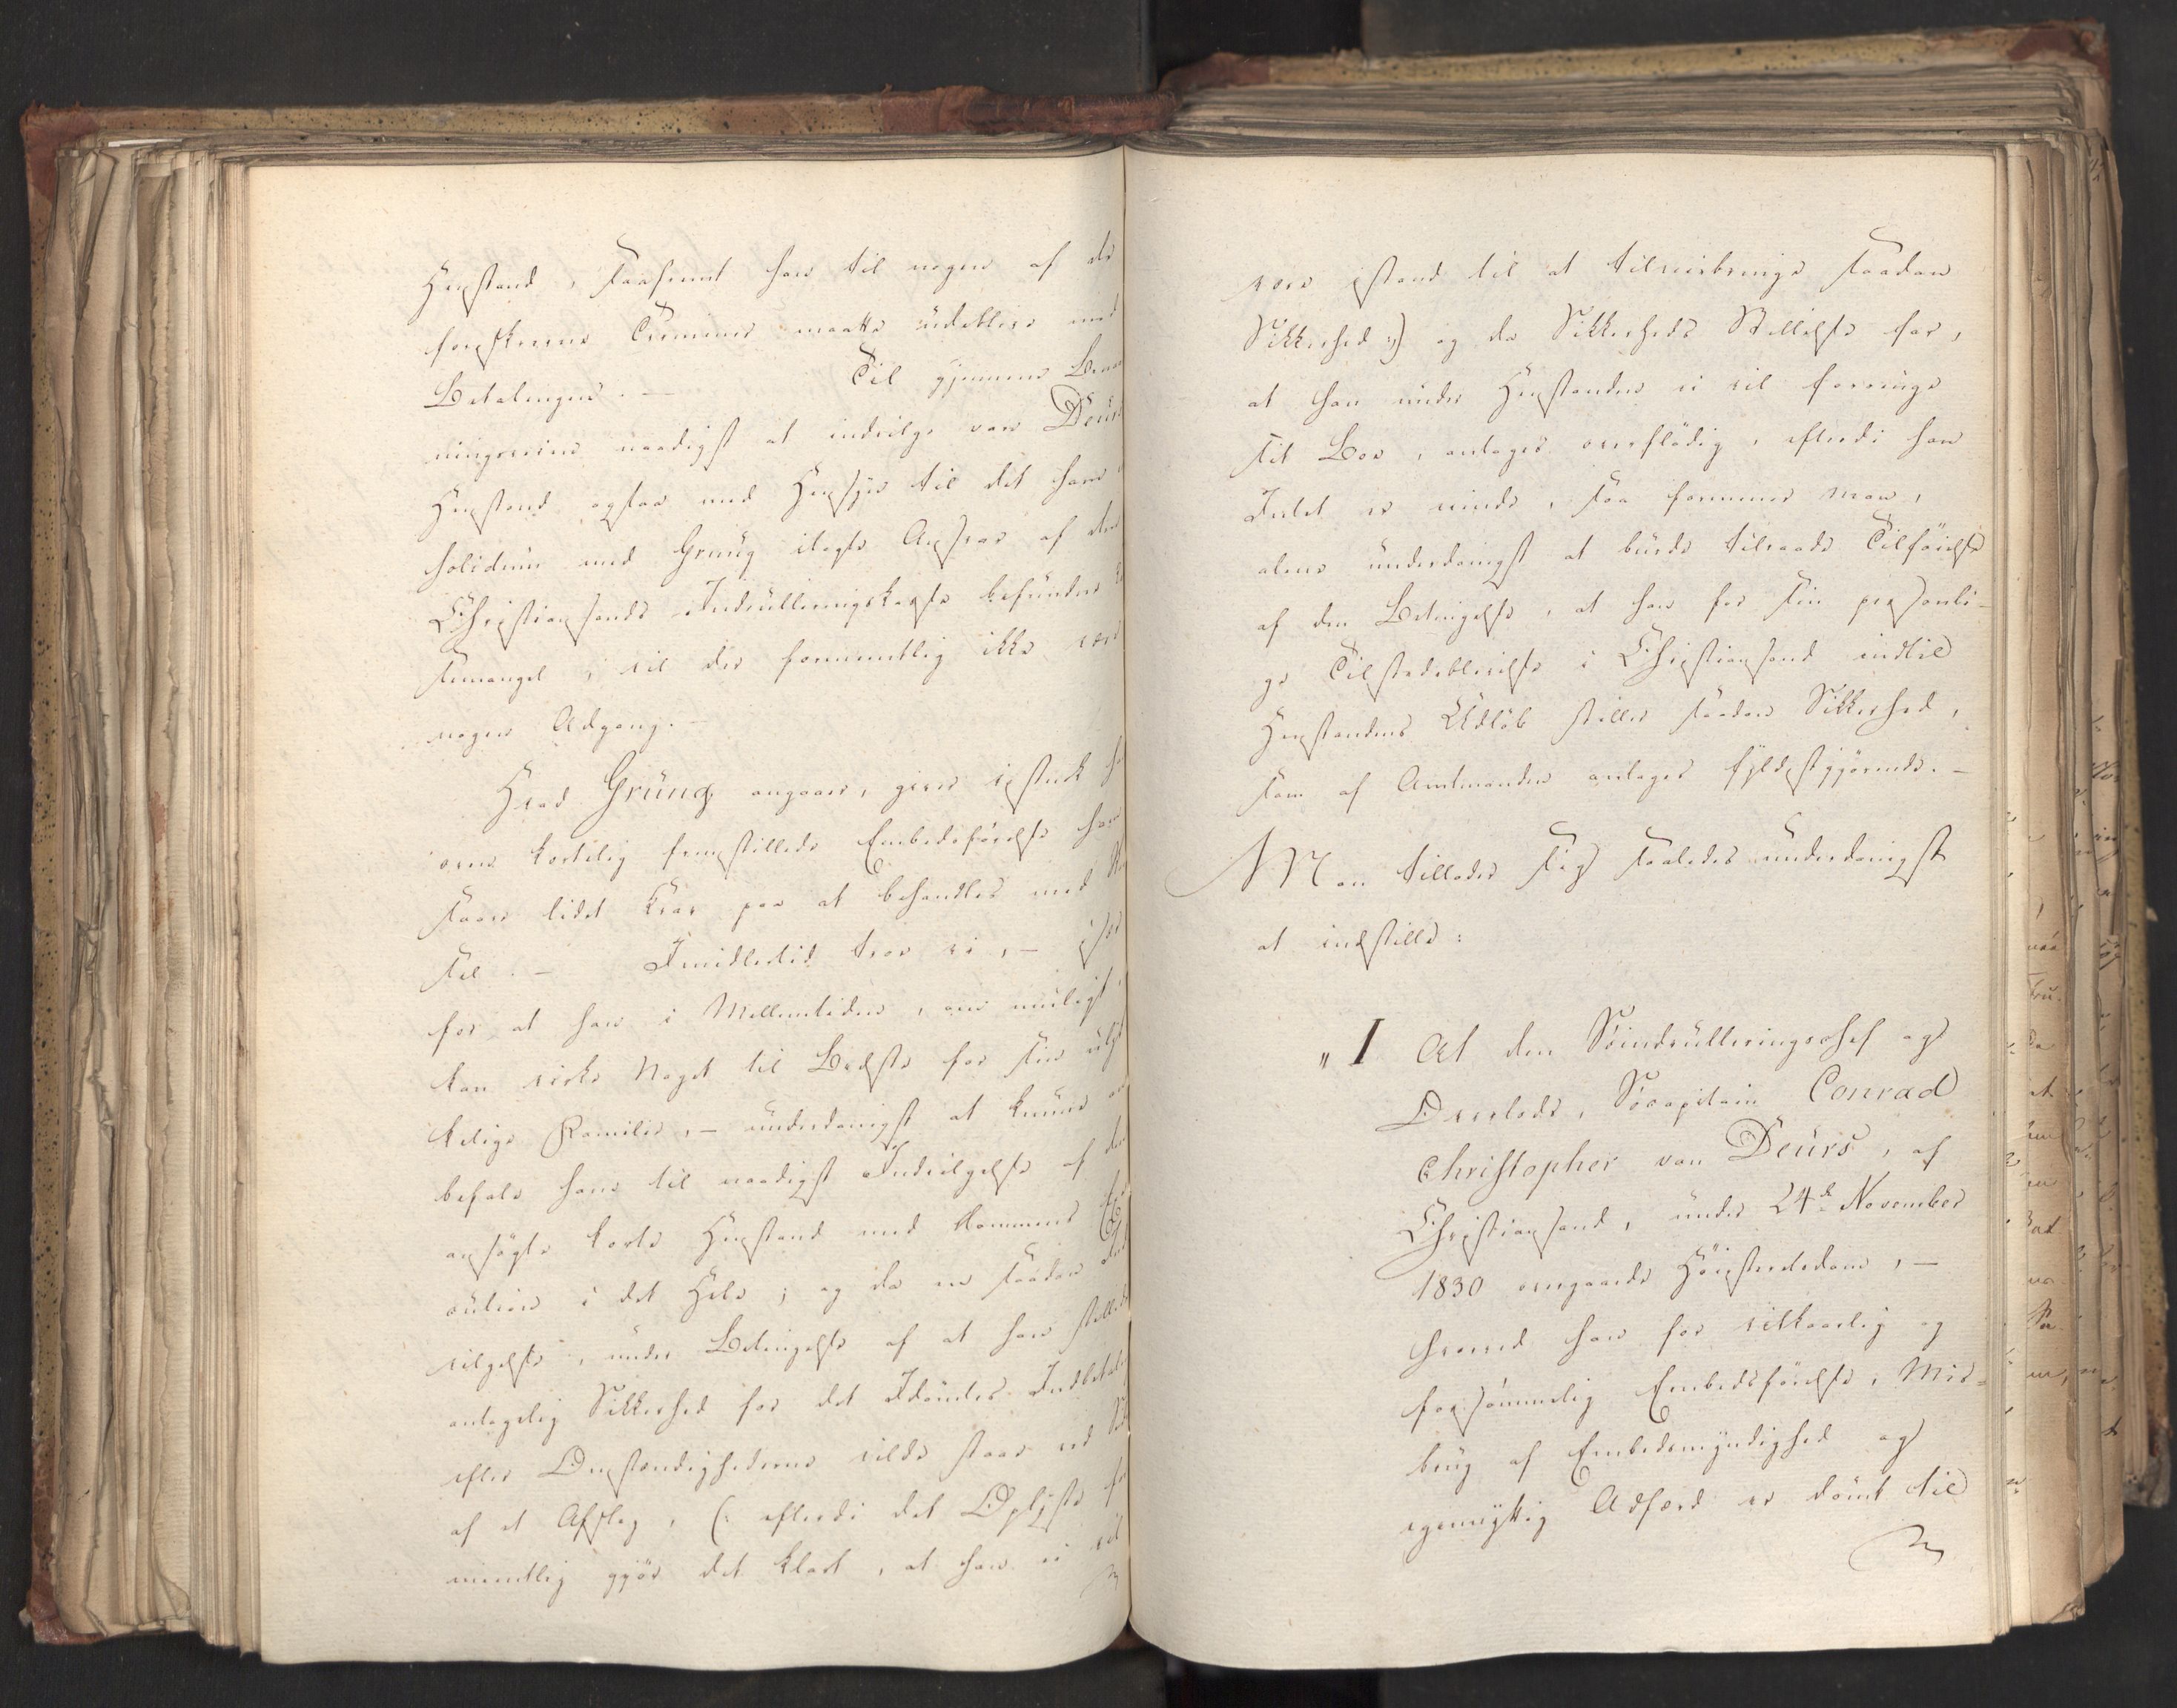 Henstand, saafremt han til nogen af de
foreskrevne Terminer maatte udeblive med
Betalingen. — Til gjennem Benaad-
ningsveien naadigst at indvilge van Deurs
Henstand ogsaa med Hensyn til det ham in
solidum med Gruug ilagte Ansvar af den
Christiansands Indrulleringskasse befundne
Kassemangel, vil der formeentlig ikke være
nogen Adgang. —
Hvad Grüng angaaer, giver vistnok hans
oven kortelig fremstillede Embedsførelse ham
saare lidet Krav paa at behandles med Skaan-
sel. — Imidlertid troe vi, — især
for at han i Mellemtiden, om muligt,
kan virke Noget til Bedste for sin ulyk-
kelige Familie, — underdanigst at kunne an-
befale ham til naadigst Indvilgelse af den
ansøgte korte Henstand med Dommens Exe-
cution i det Hele; og da en saadan Ind-
vilgelse, under Betingelse af at han stillede
antagelig Sikkerhed for det Idømtes Indbetaling
efter Omstændighederne vilde staae ved Siden
af et Afslag, (: efterdi det Oplyste for-
meentlig gjør det klart, at han ei vil
være istand til at tilveiebringe saadan
Sikkerhed :) og da Sikkerheds Stillelse for,
at han under Henstanden ei vil forringe
sit Boe, antages overflødig, efterdi han
Intet er eiende, saa formener man,
alene underdanigst at burde tilraade Tilføielse
af den Betingelse, at han for sin personli-
ge Tilstedeblivelse i Christiansand indtil
Henstandens Udløb stiller saadan Sikkerhed,
som af Amtmanden antages fyldestgjørende. —
Man tillader sig saaledes underdanigst
at indstille:
"I At den Söindrulleringschef og
Overlods, Söcapitain Conrad
Christopher van Deurs, af
Christiansand, under 24de November
1830 overgaaede Höiesteretsdom, —
hvorved han for vilkaarlig og
forsømmelig Embedsførelse, Mis-
brug af Embedsmyndighed og
egennyttig Adfærd er dømt til